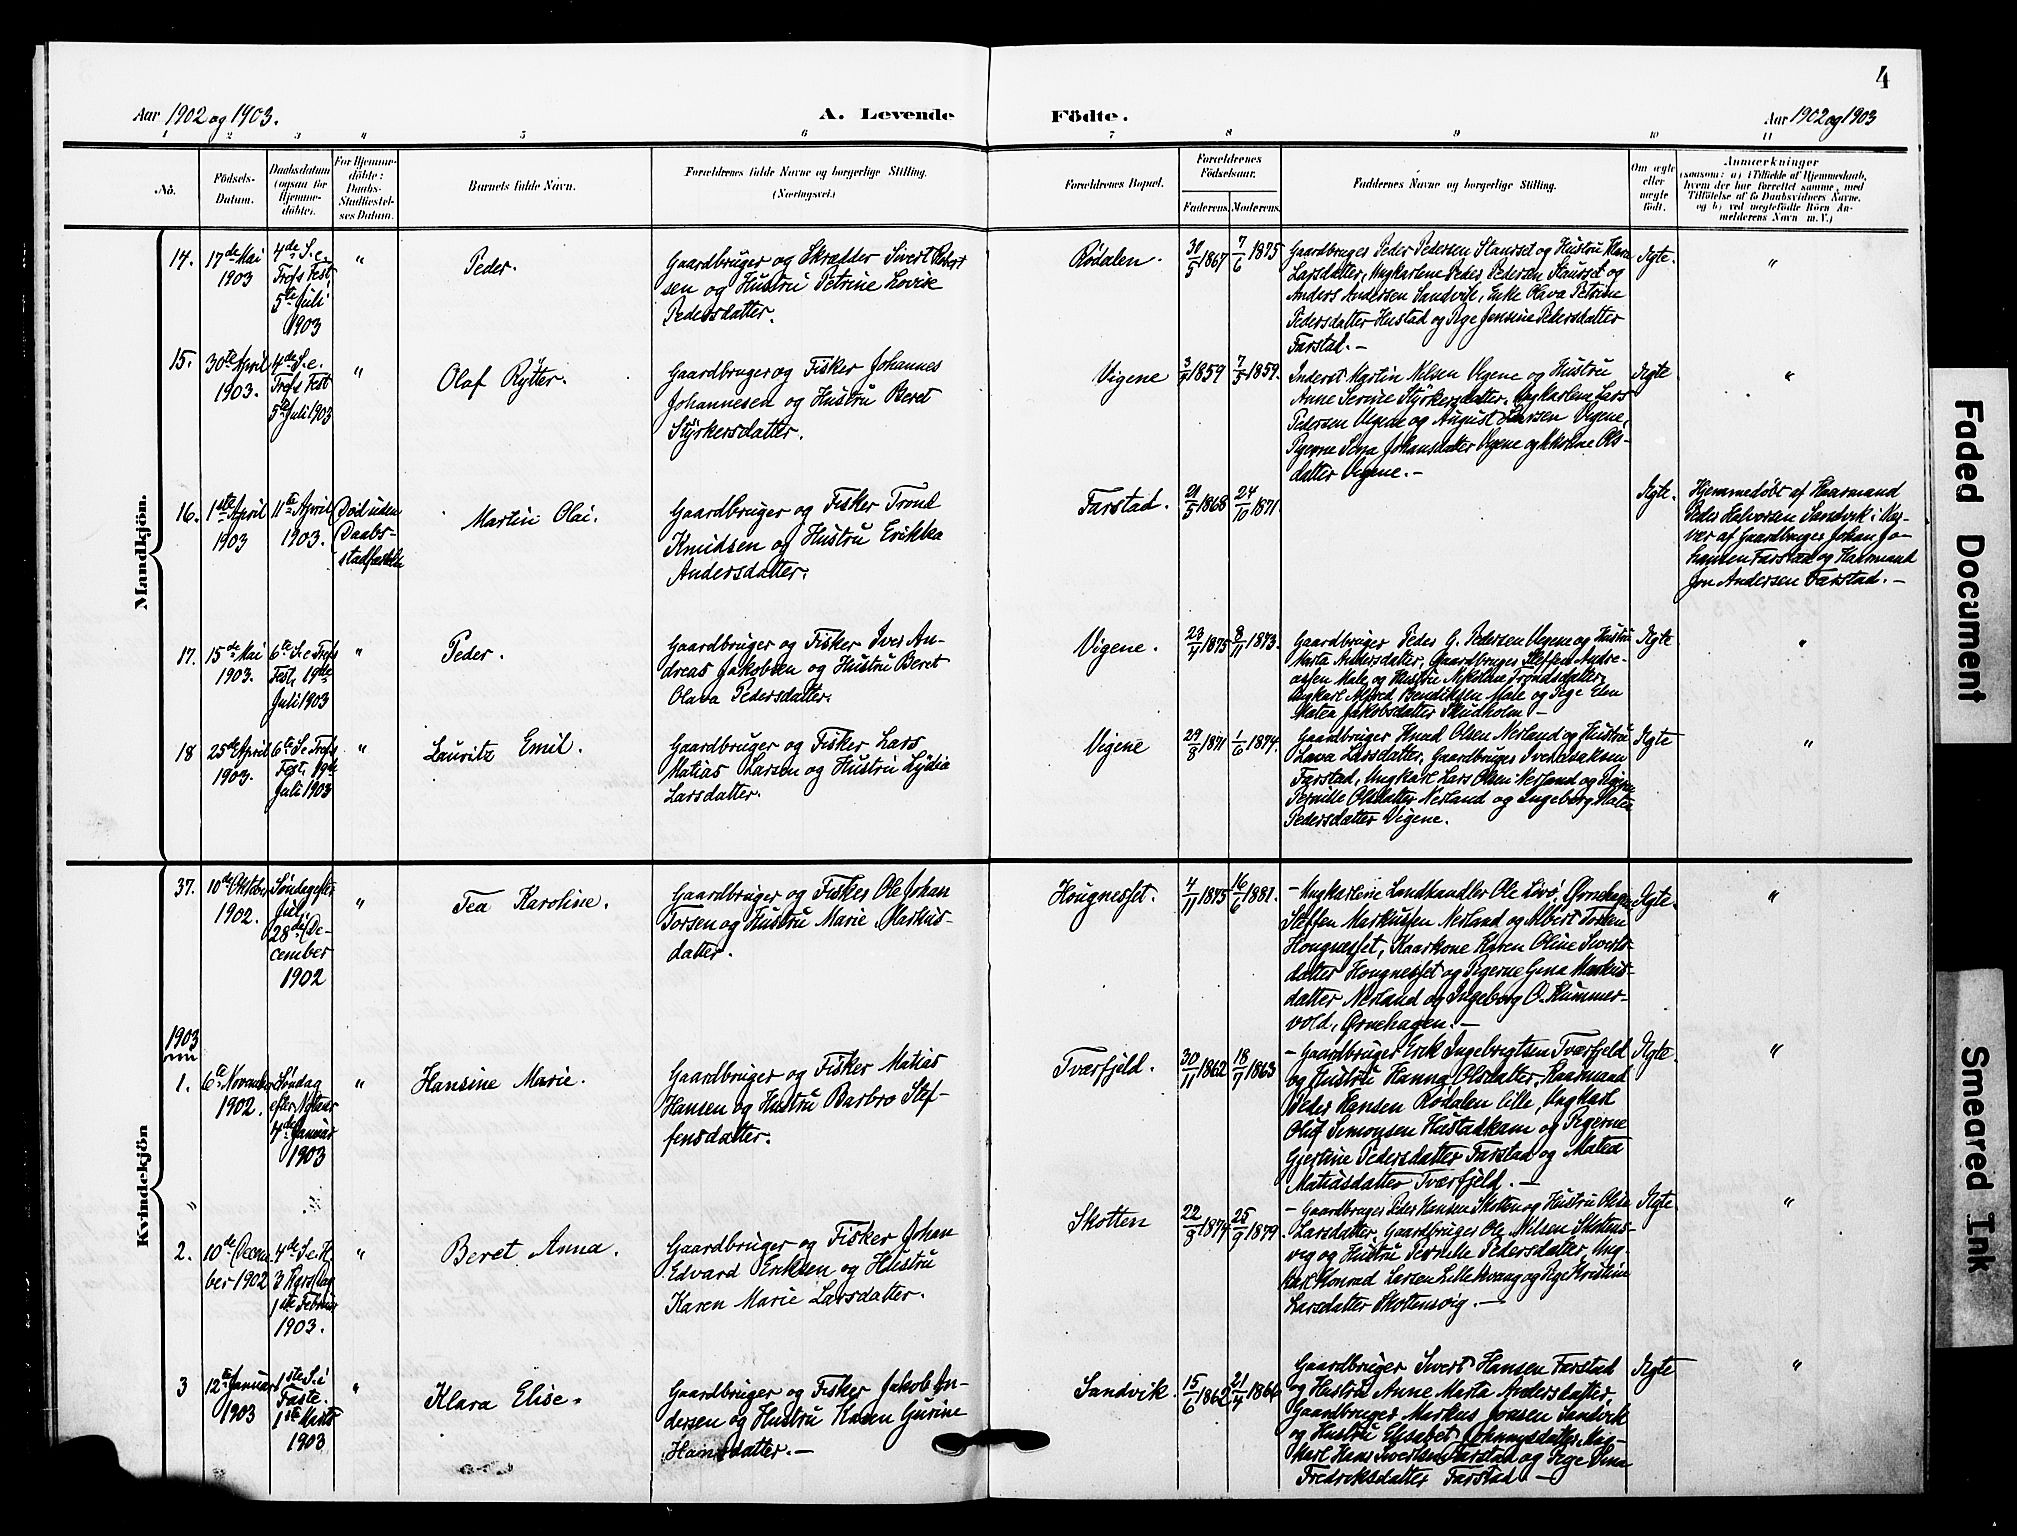 4
Aar 1902 og 1903.
A. Levende Födte.
Aar 1902 og 1903
1 2 3 4 5 6 7 8 9 10 11
No.
Födsels-
Datum.
Daabsdatum
(ogsaa for
Hjemme-
döbte).
For Hjemme-
döbte:
Daabs-
Stadfæstel-
ses Datum.
Barnets fulde Navn.
Forældrenes fulde Navne og borgerlige Stilling.
(Næringsvei.)
Forældrenes Bopæl.
Forældrenes
Födselsaar.
Faderens. Moderens.
Faddernes Navne og borgerlige Stilling.
Om ægte
eller
uægte
födt.
Anmærkninger
(saasom: a) i Tilfælde af Hjemmedaab,
hvem der har forrettet samme, med
Tilföielse af to Daabsvidners Navne,
og b) ved uægtefödte Börn An-
melderens Navn m. V.)
Mandkjön.
14.
17de Mai
1903
4de S. e.
Trefs Fest,
5te Juli
1903
"
Peder.
Gaardbruger og Skrædder Sivert Peder
sen og Hustru Petrine Lovise
Pedersdatter.
Rødalen.
31/5 1867
7/6 1875
Gaardbruger Peder Pedersen Stavset og Hustru
Larsdatter, Ungkarlene Peder Pedersen Stavset og
Anders Andersen Sandvik, Enke Olava Petrine
Pedersdatter Hustad og Pige Jensine Pedersdatter
Farstad.-
Ægte.
"
15.
30te April
1903.
4de S. e.
Trefs Fest
5te Juli 1903
"
Olaf Rytter.
Gaardbruger og Fisker Johannes
Johannesen og Hustru Beret
Styrkersdatter.
Vigene
3/9 1859
7/5 1859.
Inderst Martin Nilsen Vigene og Hustru
Anne Serine Styrkersdatter, Ungkarlene Lars
Pedersen Vigene og August Larsen Vigene,
Pigerne Johansdatter Vigene og Ols-
datter Vigene.-
Ægte
"
16.
1ste April
1903
11te April
1903.
Död uden
Daabs-
stadfæstelse
Martin Olai.
Gaardbruger og Fisker Trond
Knudsen og Hustru Erikka
Andersdatter.
Farstad.
21/5 1868
24/10 1871.
Ægte.
Hjemmedøbt af Kaarmand
Peder Halvorsen Sandvik i Nær-
vær af Gaardbruger Johan Jo-
hansen Farstad og Kaarmand
Jon Andersen Farstad.-
17.
15de Mai
1903.
6te S. e Trefs
Fest, 19de
Juli 1903
"
Peder.
Gaardbruger og Fisker Iver An-
dreas Jakobsen og Hustru Beret
Olava Pedersdatter.
Vigene.
23/4 1875
8/11 1873.
Gaardbruger Peder G. Pedersen Vigene og Hustru
Marta Andersdatter, Gaardbruger Steffen Andre-
assen Male og Hustru Nikoline Trondsdatter,
Ungkarl Alfred Bendiksen Male og Pige Elen
Matea Jakobsdatter Skudholm-
Ægte
"
18
25de April
1903.
6te S. e Trefs
Fest, 19de
Juli 1903
"
Lauritz Emil.
Gaardbruger og Fisker Lars
Matias Larsen og Hustru Lydia
Larsdatter.
Vigene
29/8 1871
1/6 1874.
Gaardbruger Knud Olsen Nerland og Hustru
Lava Larsdatter, Gaardbruger Iver Isaksen
Farstad, Ungkarl Lars Olsen Nerland og Pigerne
Pernille Olsdatter Nerland og Ingeborg Matea
Pedersdatter Vigene.
Ægte
"
Kvindekjön
37.
10de Oktober
1902.
Søndag efter
Jul,
28de De-
cember
1902
"
Tea Karoline.
Gaardbruger og Fisker Ole Johan
Torsen og Hustru Marie Markus-
datter.
Hougnesset.
4/11 1875
16/6 1881.
- Ungkarlene Landhandler Ole Livø, Ørnehagen
Steffen Markussen Nerland og Albert Torsen
Hougnesset, Kaarkone Karen Oline Siverts-
datter Hougnesset og Pigerne Gina Markus-
datter Nerland og Ingeborg O. Rummer-
vold, Ørnehagen.-
Ægte.
"
1903
1.
6te November
1902.
Søndag
efter Nytaar
4de Januar
1903
"
Hansine Marie.
Gaardbruger og Fisker Matias
Hansen og Hustru Barbro Stef-
fensdatter.
Tværfjeld.
30/11 1862
18/7 1863
- Gaardbruger Erik Ingebrigtsen Tværfjeld
og Hustru Hanna Olsdatter, Kaarmand
Peder Hansen Rødalen lille, Ungkarl
Oluf Simonsen Hustadkam og Pigerne
Gjertine Pedersdatter Farstad og Matea
Matiasdatter Tværfjeld.-
Ægte.
"
"
2.
10de Decem-
ber 1902
4de S. e H.
3 Kgrs Dag
1ste Februar
1903.
"
Beret Anna.
Gaardbruger og Fisker Johan
Edvard Eriksen og Hustru
Karen Marie Larsdatter.
Skotten
22/8 1874
25/9 1879.
- Gaardbruger Peder Hansen Skotten og Hustru
Larsdatter, Gaardbruger Ole Nilsen Skottens-
vig og Hustru Pernille Pedersdatter, Ung-
karl Konrad Larsen Lillekvang og Pige Kristine
Larsdatter Skottensvig.-
Ægte.
"
3
12te Januar
1903
1ste S. i
Faste.
1ste Marts
1903
"
Klara Elise.
Gaardbruger og Fisker Jakob An-
dersen og Hustru Karen Gurine
Hansdatter.-
Sandvik.
15/6 1862
21/4 1866
Gaardbruger Sivert Hansen Farstad
og Hustru Anne Marta Andersdatter,
Gaardbruger Markus Joasen Sandvik
og Hustru Elisabet Ung-
karl Hans Sivertsen Farstad og Pige
Fredriksdatter Farstad.-
Ægte
"
Faded Document
Smeared Ink